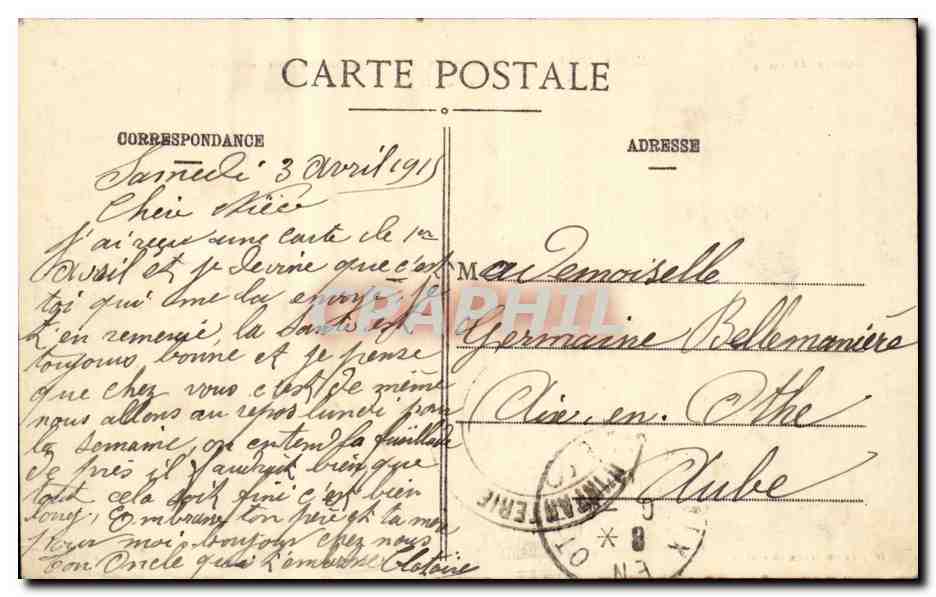 CARTE POSTALE
CORRESPONDANCE
ADRESSE
Samedi 3 avril 1915
Chère Nièce
J'ai reçu une carte de 1er
Avril et je devine que c'est
toi qui me la envoyé, je
t'en remercie, la santé est
toujours bonne et je pense
que chez vous c'est de même
nous allons au repos lundi pour
la semaine, on entend la fusillade
de près il faudrait bien que
tout cela soit fini c'est bien
long, Embrasse ton père et ta mère
pour moi, toujour chez nous
ton Oncle qui t'embrasse Clotaire
Mademoiselle
Germaine Bellemanière
Aix-en-Othe
Aube
CPAPHIL
INFANTERIE
EN OT
8